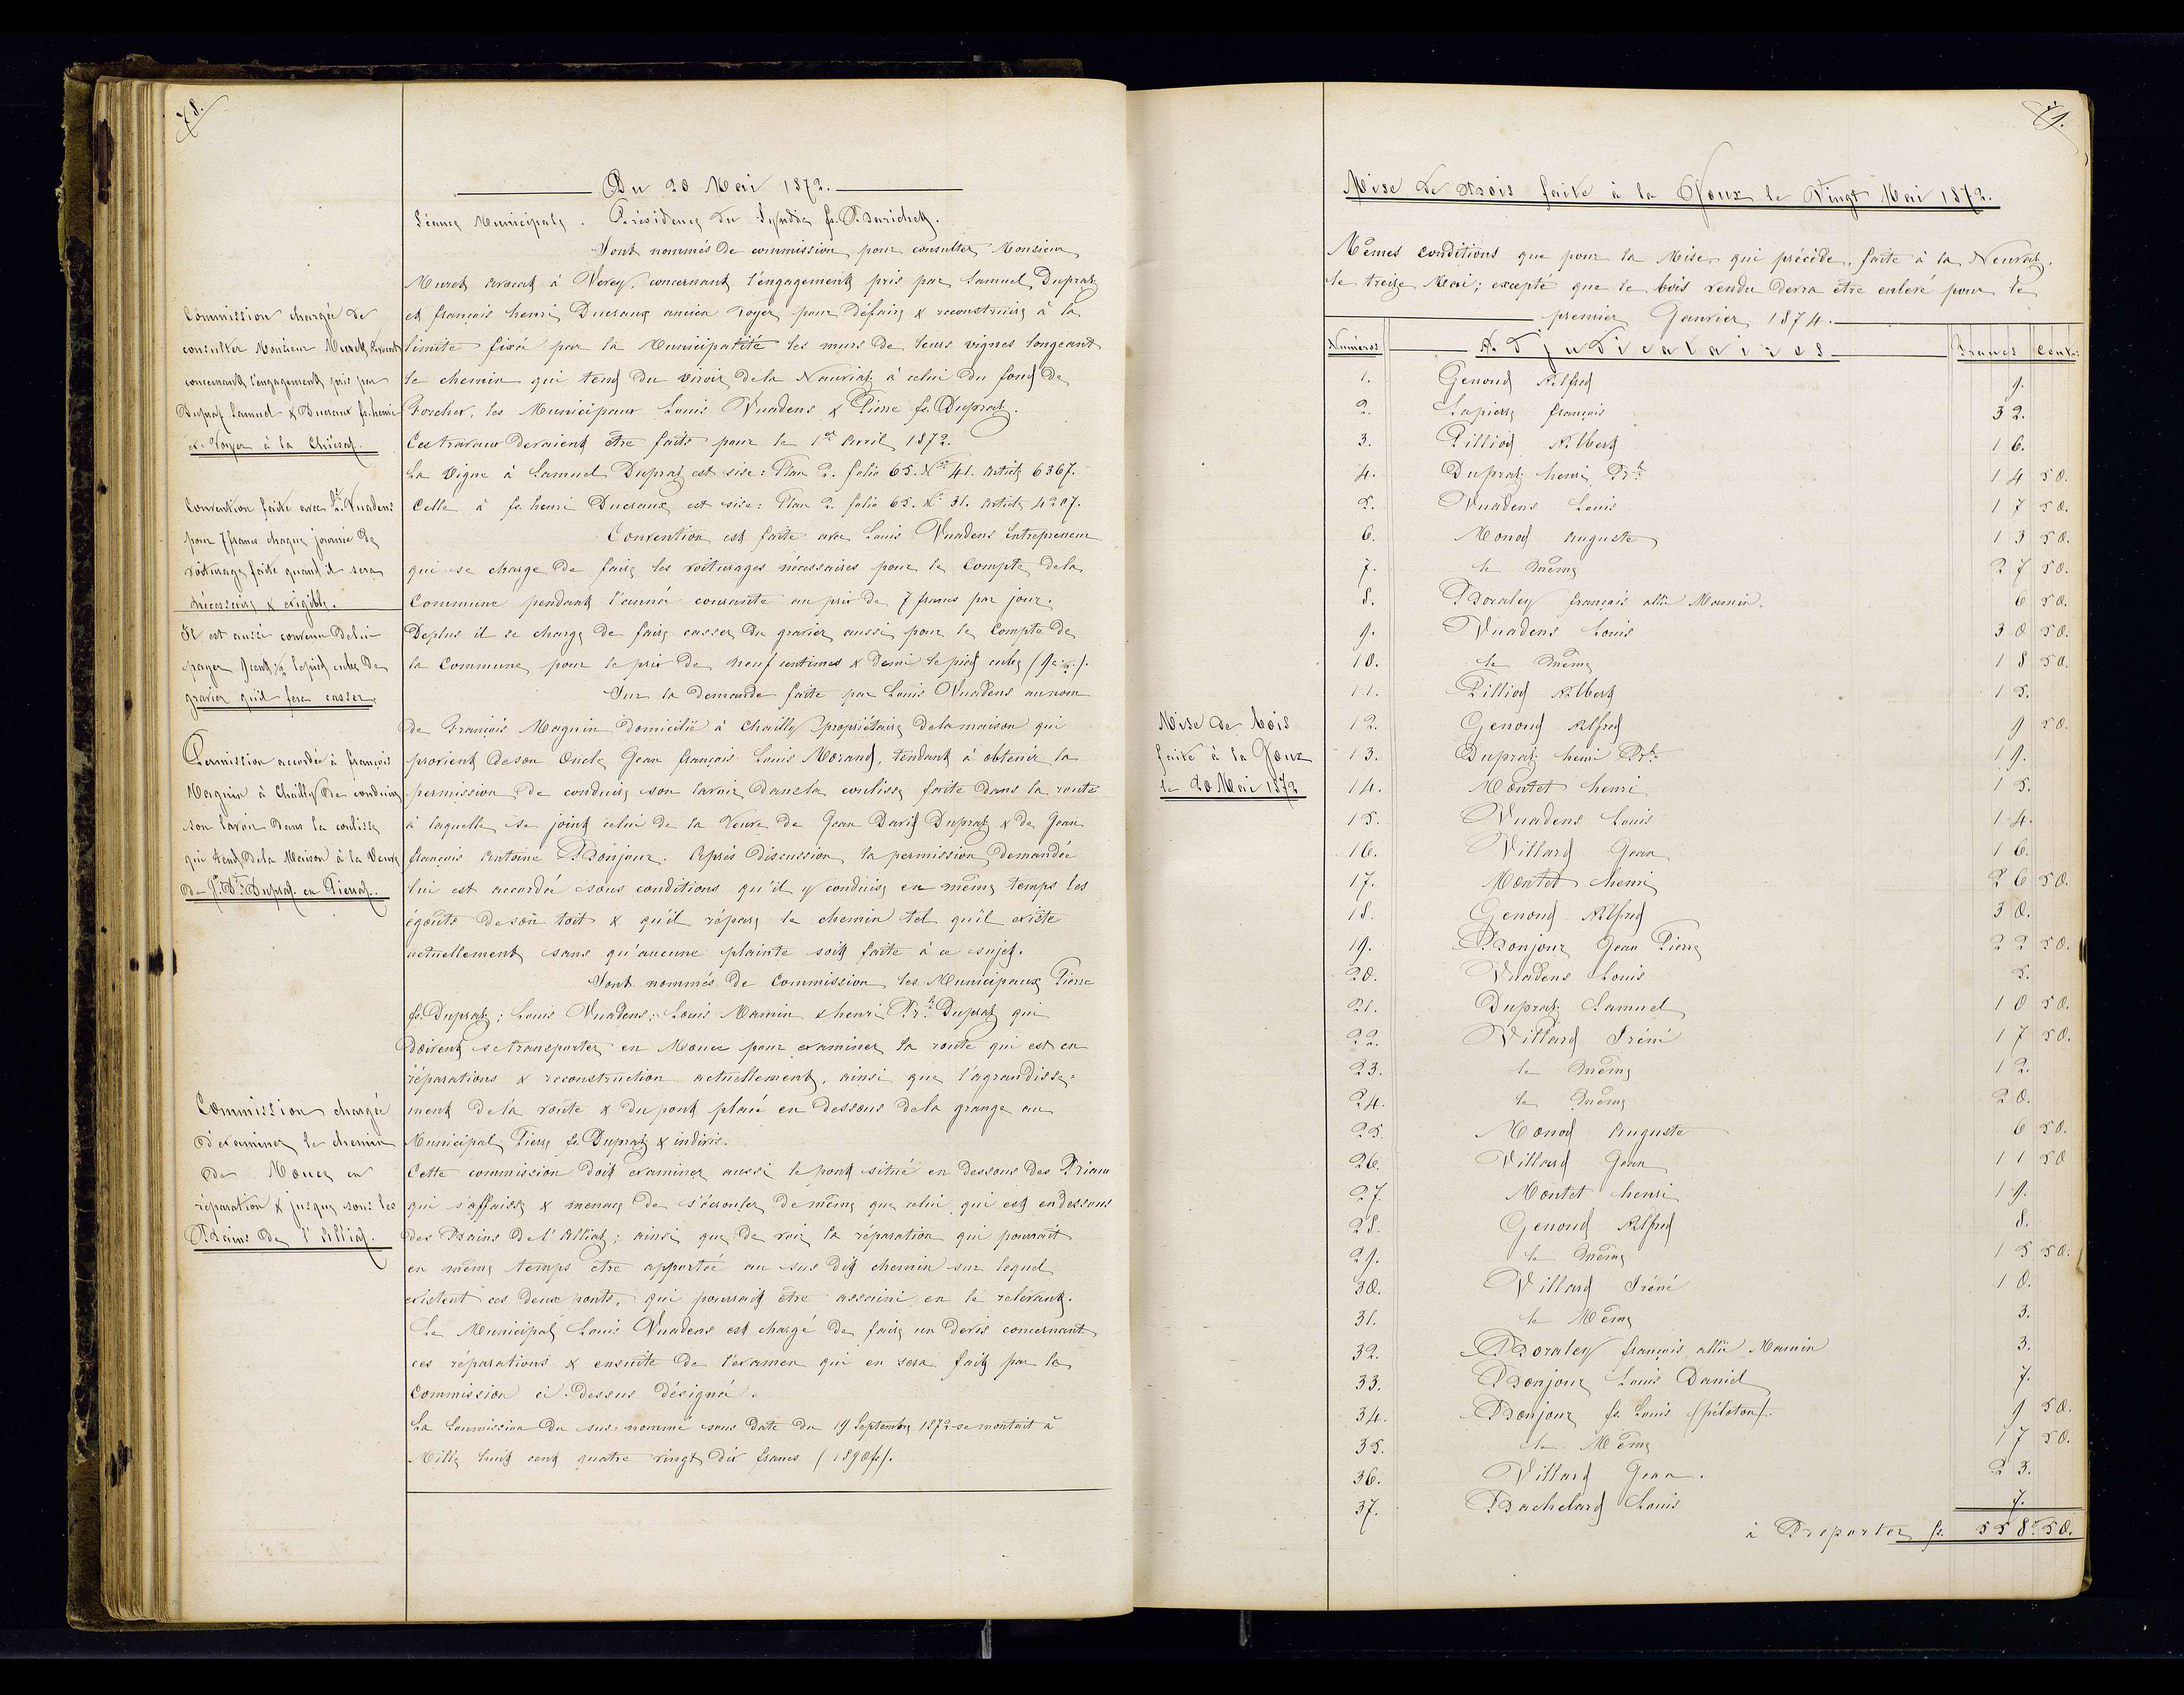 78.
Du 20 Mai 1872.
Séance Municipale. Présidence du Syndic fs. Barichet.
Sont nommés de commission pour consulter Monsieur
Muret avocat à Vevey, concernant l'engagement pris par Samuel Dupraz
et françois henri Ducraux ancien voyer pour défaire & reconstruire à la
limite fixée par la Municipalité les murs de leurs vignes longeant
le chemin qui tend du viroir de la Nauriaz à celui du fond de
les Municipaux Louis Vuadens & Pierre fs. Dupraz.
Ces travaux devaient être faits pour le 1er Avril 1872.
La vigne à Samuel Dupraz est sise: Plan 2. folio 65. No 41. Article 6367.
Celle à fs. henri Ducraux est sise: Plan 2. folio 65. No 31. Article 4207.
Convention est faite avec Louis Vuadens Entrepreneur
qui se charge de faire les voiturages nécessaires pour le Compte de la
Commune pendant l'année courante au prix de 7 francs par jour.
Deplus il se charge de faire casser du gravier aussi pour le Compte de
la Commune pour le prix de neuf centimes & demi le pied cube (9c ½).
Sur la demande faite par Louis Vuadens au nom
de François Magnin domicilié à Chailly propriétaire de la maison qui
provient de son Oncle Jean françois Louis Morand, tendant à obtenir la
permission de conduire son lavoir dans la coulisse faite dans la route
à laquelle se joint celui de la Veuve de Jean David Dupraz & de Jean
françois Antoine Bonjour. Après discussion la permission demandée
lui est accordée sous conditions qu'il y conduise en même temps les
égouts de son toit & qu'il répare le chemin tel qu'il existe
actuellement sans qu'aucune plainte soit faite à ce sujet.
Sont nommés de Commission les Municipaux Pierre
fs. Dupraz; Louis Vuadens; Louis Mamin & henri Prt. Dupraz qui
doivent se transporter en Mouce pour examiner la route qui est en
réparations & reconstruction actuellement, ainsi que l'agrandisse=
ment de la route & du pont placé en dessous de la grange au
Municipal Pierre fs. Dupraz & indivis.
Cette commission doit examiner aussi le pont situé en dessous des
qui s'affaisse & menace de s'écrouler de même que celui qui est en dessous
des Bains de l'Alliaz; ainsi que de voir la réparation qui pourrait
en même temps être apportée au sus dit chemin sur lequel
existent ces deux ponts, qui pourrait être assaini en le relevant.
Le Municipal Louis Vuadens est chargé de faire un devis concernant
ces réparations & ensuite de l'examen qui en sera fait par la
Commission ci-dessus désignée.
La Soumission du sus-nommé sous date du 19 Septembre 1872 se montait à
Mille huit cent quatre vingt dix francs (1890 fs).
Commission chargée de
consulter Monsieur Muret Avocat
concernant l'engagement pris par
Dupraz Samuel & Ducraux fs. henri
Voyer à la Chiésaz.
Convention faite avec Ls. Vuadens
pour 7 francs chaque journée de
voiturage faite quand il sera
nécessaire & exigible.
Il est aussi convenu de lui
payer 9 cent ½ le pied cube de
gravier qu'il fera casser.
Permission accordée à françois
Magnin à Chailly de conduire
son lavoir dans la coulisse
qui tend de la Maison à la Veuve
de Jn. Dd. Dupraz en Pierraz.
Commission chargée
d'examiner le chemin
de Mouce en
réparation & jusque sous les
Bains de l'Alliaz.
79.
Mise de Bois faite à la Joux le Vingt Mai 1872.
Mêmes conditions que pour la Mise qui précède, faite à la Neuvaz,
le treize Mai; excepté que le bois vendu devra être enlevé pour le
premier Janvier 1874.
Mise de bois
faite à la Joux
le 20 Mai 1872
Numéros Adjudicataires Francs Cent:
1. Genoud Alfred 9.
2. Lapierre françois 32.
3. Pilliod Albert 16.
4. Dupraz henri Prt. 14 50.
5. Vuadens Louis 17 50.
6. Monod Auguste 13 50.
7. le même 27 50.
8. Boraley françois allié Mamin. 6 50.
9. Vuadens Louis 30 50.
10. le même 18 50.
11. Pilliod Albert 15.
12. Genoud Alfred 9 50.
13. Dupraz henri Prt. 19.
14. Montet henri 15.
15. Vuadens Louis 14.
16. Villard Jean 16.
17. Montet henri 26 50.
18. Genoud Alfred 30.
19. Bonjour Jean Pierre 22 50.
20. Vuadens Louis 5.
21. Dupraz Samuel 10 50.
22. Villard Iréné 17 50.
23. le même 12.
24. le même 20.
25. Monod Auguste 6 50.
26. Villard Jean 11 50
27. Montet henri 19.
28. Genoud Alfred 8.
29. le même 15 50.
30. Villard Iréné 10.
31. le Même 3.
32. Boraley françois allié Mamin 3.
33. Bonjour Louis Daniel 7.
34. Bonjour fs. Louis (péloton). 9 50.
35. le Même 17 50.
36. Villard Jean. 23.
37. Bachelard Louis 7.
à Reporter fs. 558. 50.